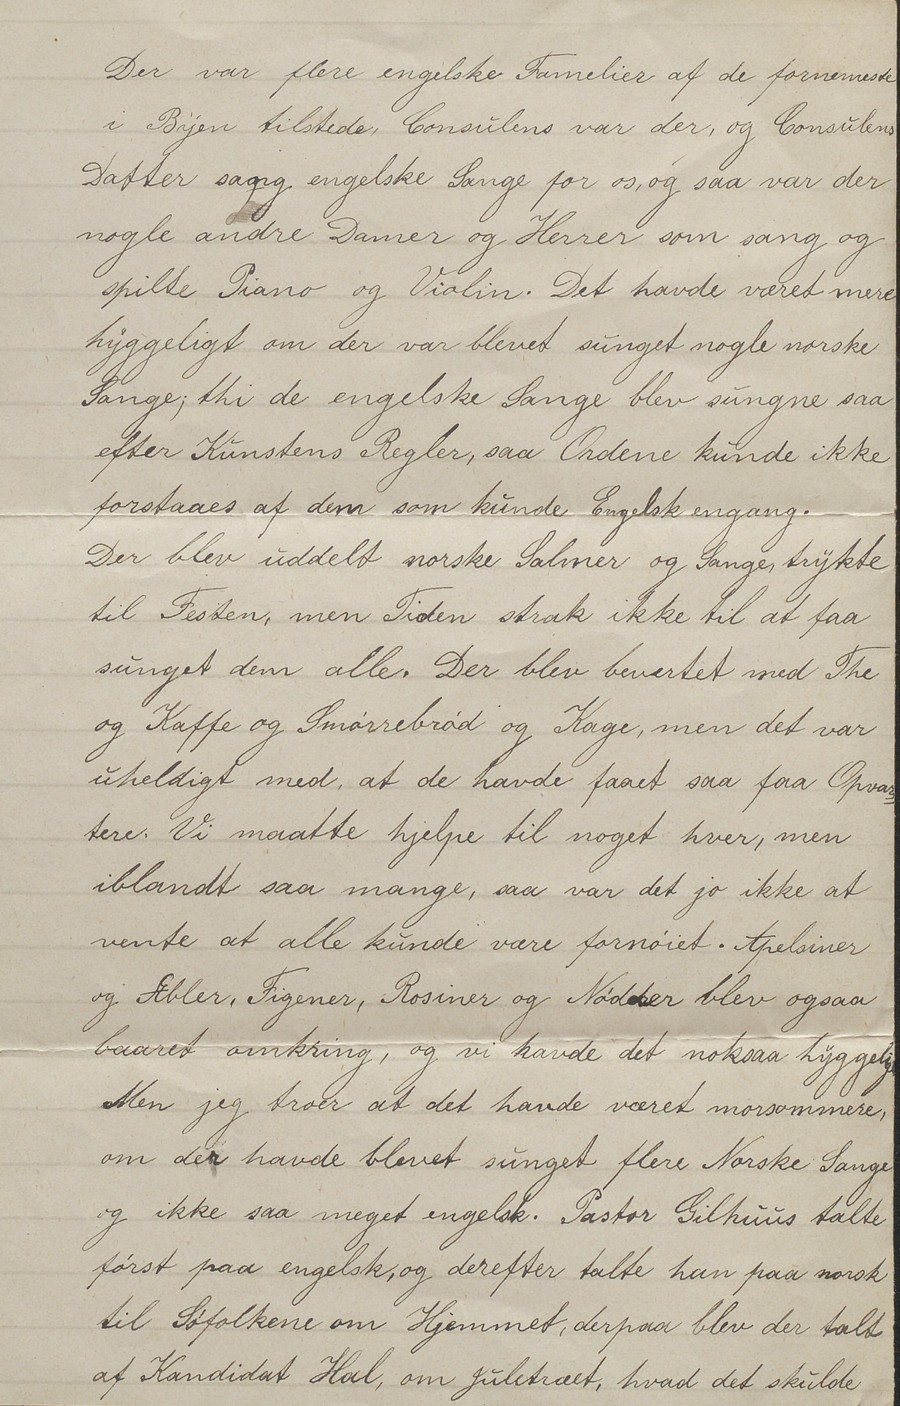 Der var flere engelske Familier af de fornemeste
i Byen tilstede, Consulens var der, og Consulens
Datter sang engelske Sange for os, og saa var der
nogle andre Damer og Herrer som sang og
spilte Piano og Violin. Det havde været mere
hyggeligt om der var blevet sunget nogle norske
Sange; thi de engelske Sange blev sungne saa
efter Kunstens Regler, saa Ordene kunde ikke
forstaaes af dem som kunde Engelsk engang.
Der blev uddelt norske Salmer og Sange, trykte
til Festen, men Tiden strak ikke til at faa
sunget dem alle. Der blev bevertet med The
og Kaffe og Smórrebród og Kage, men det var
uheldigt med, at de havde faaet saa faa Opvar=
tere. Vi maatte hjelpe til noget hver, men
iblandt saa mange, saa var det jo ikke at
vente at alle kunde være fornóiet. Apelsiner
og Æbler, Figener, Rosiner og Nódder blev ogsaa
baaret omkring, og vi havde det noksaa hyggelig
Men jeg troer at det havde været morsommere,
om der havde blevet sunget flere Norske Sange
og ikke saa meget engelsk. Pastor Gilhuus talte
fórst paa engelsk, og derefter talte han paa norsk
til Sófolkene om Hjemmet, derpaa blev der talt
af Kandidat Hal, om Juletræet, hvad det skulde